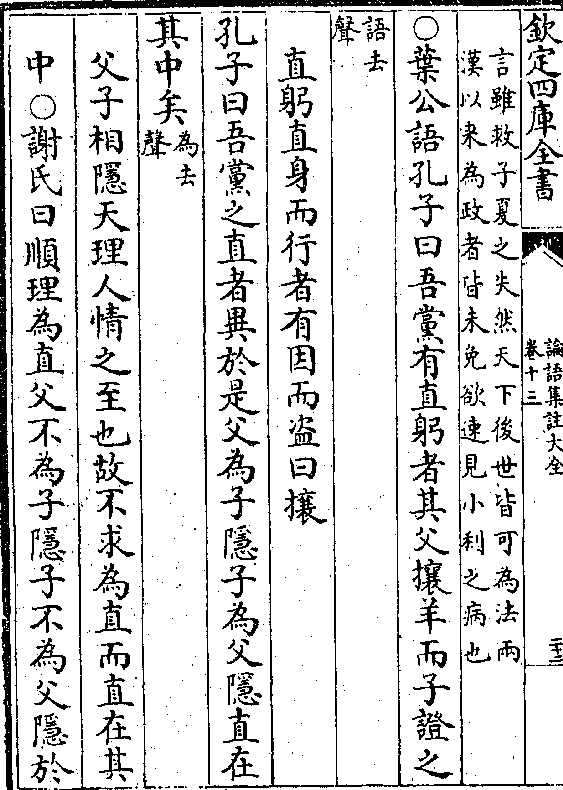 欽定四庫全書
論語集註大全
卷十三
言雖救子夏之失然天下後世皆可為法兩
漢以來為政者皆未免欲速見小利之病也
○葉公語孔子曰吾黨有直躬者其父攘羊而子證之
語去
聲
直躬直身而行者有因而盗曰攘
孔子曰吾黨之直者異於是父為子隱子為父隱直在
其中矣
為去
聲
父子相隱天理人情之至也故不求為直而直在其
中○謝氏曰順理為直父不為子隱子不為父隱於